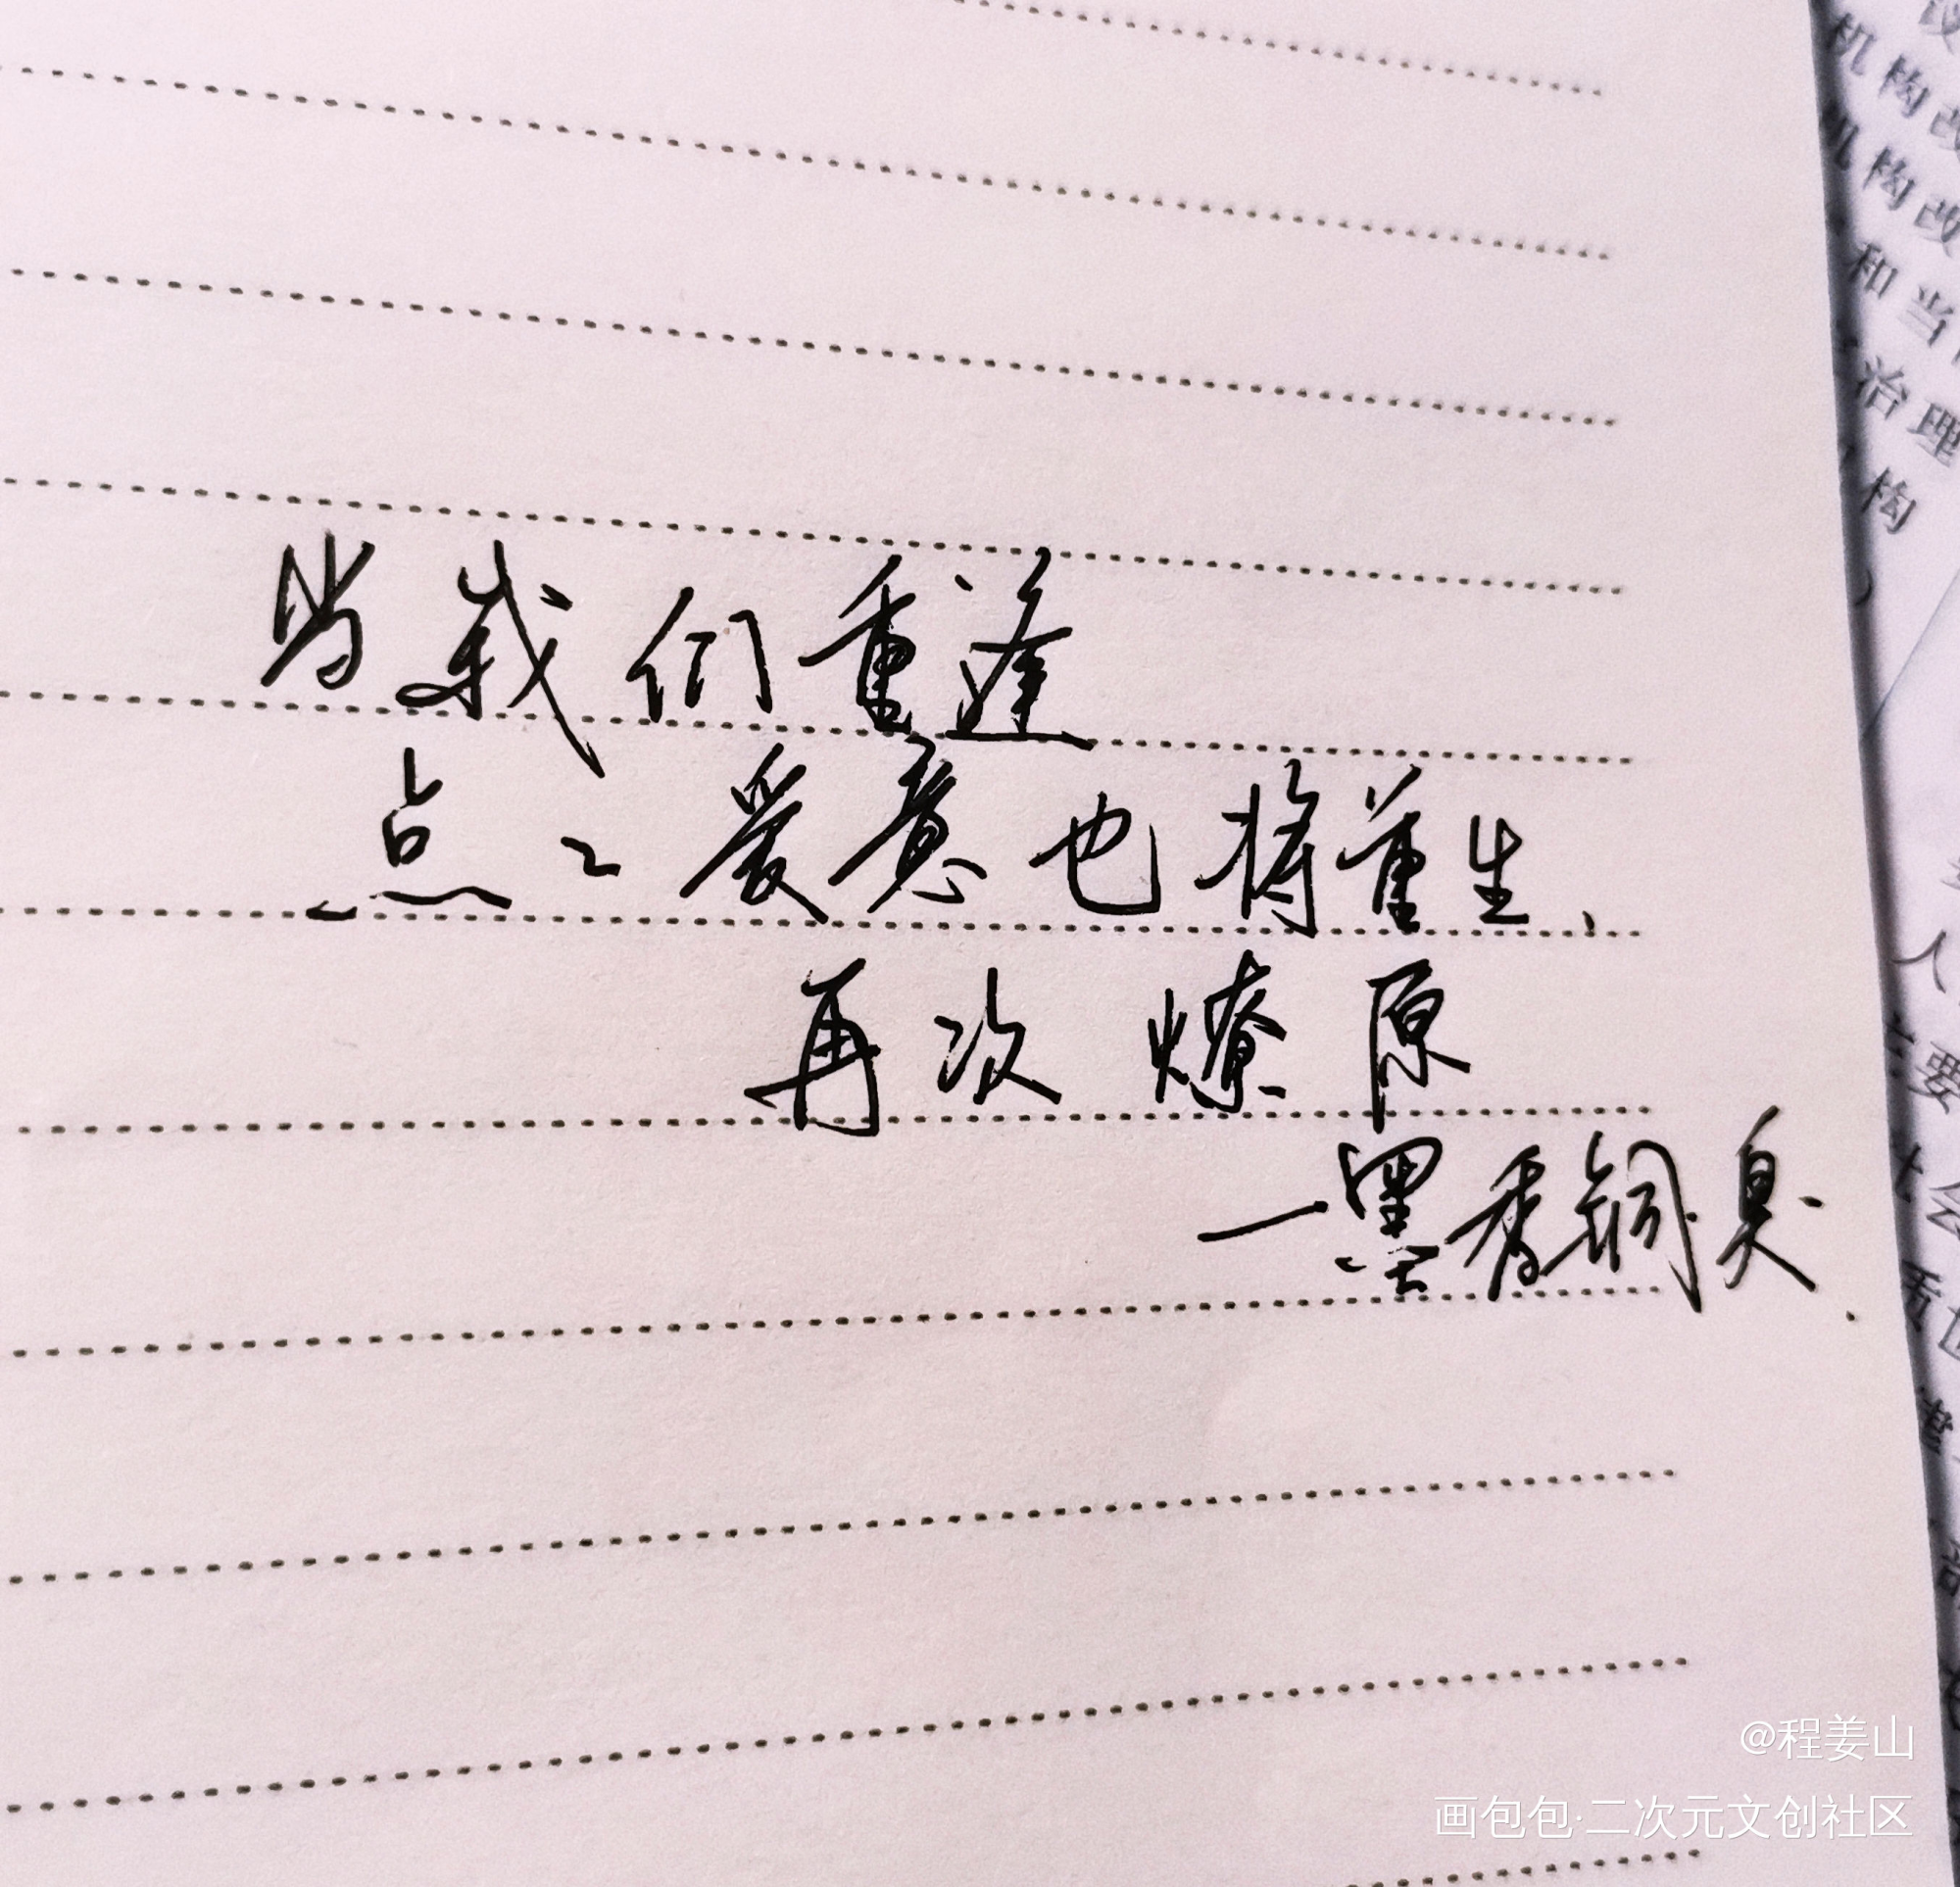 当我们重逢
点々爱意也将重生、
再次燎原
—墨香铜臭.
机构改
机构改
和当
治理
构
人
要
@程姜山
画包包·二次元文创社区